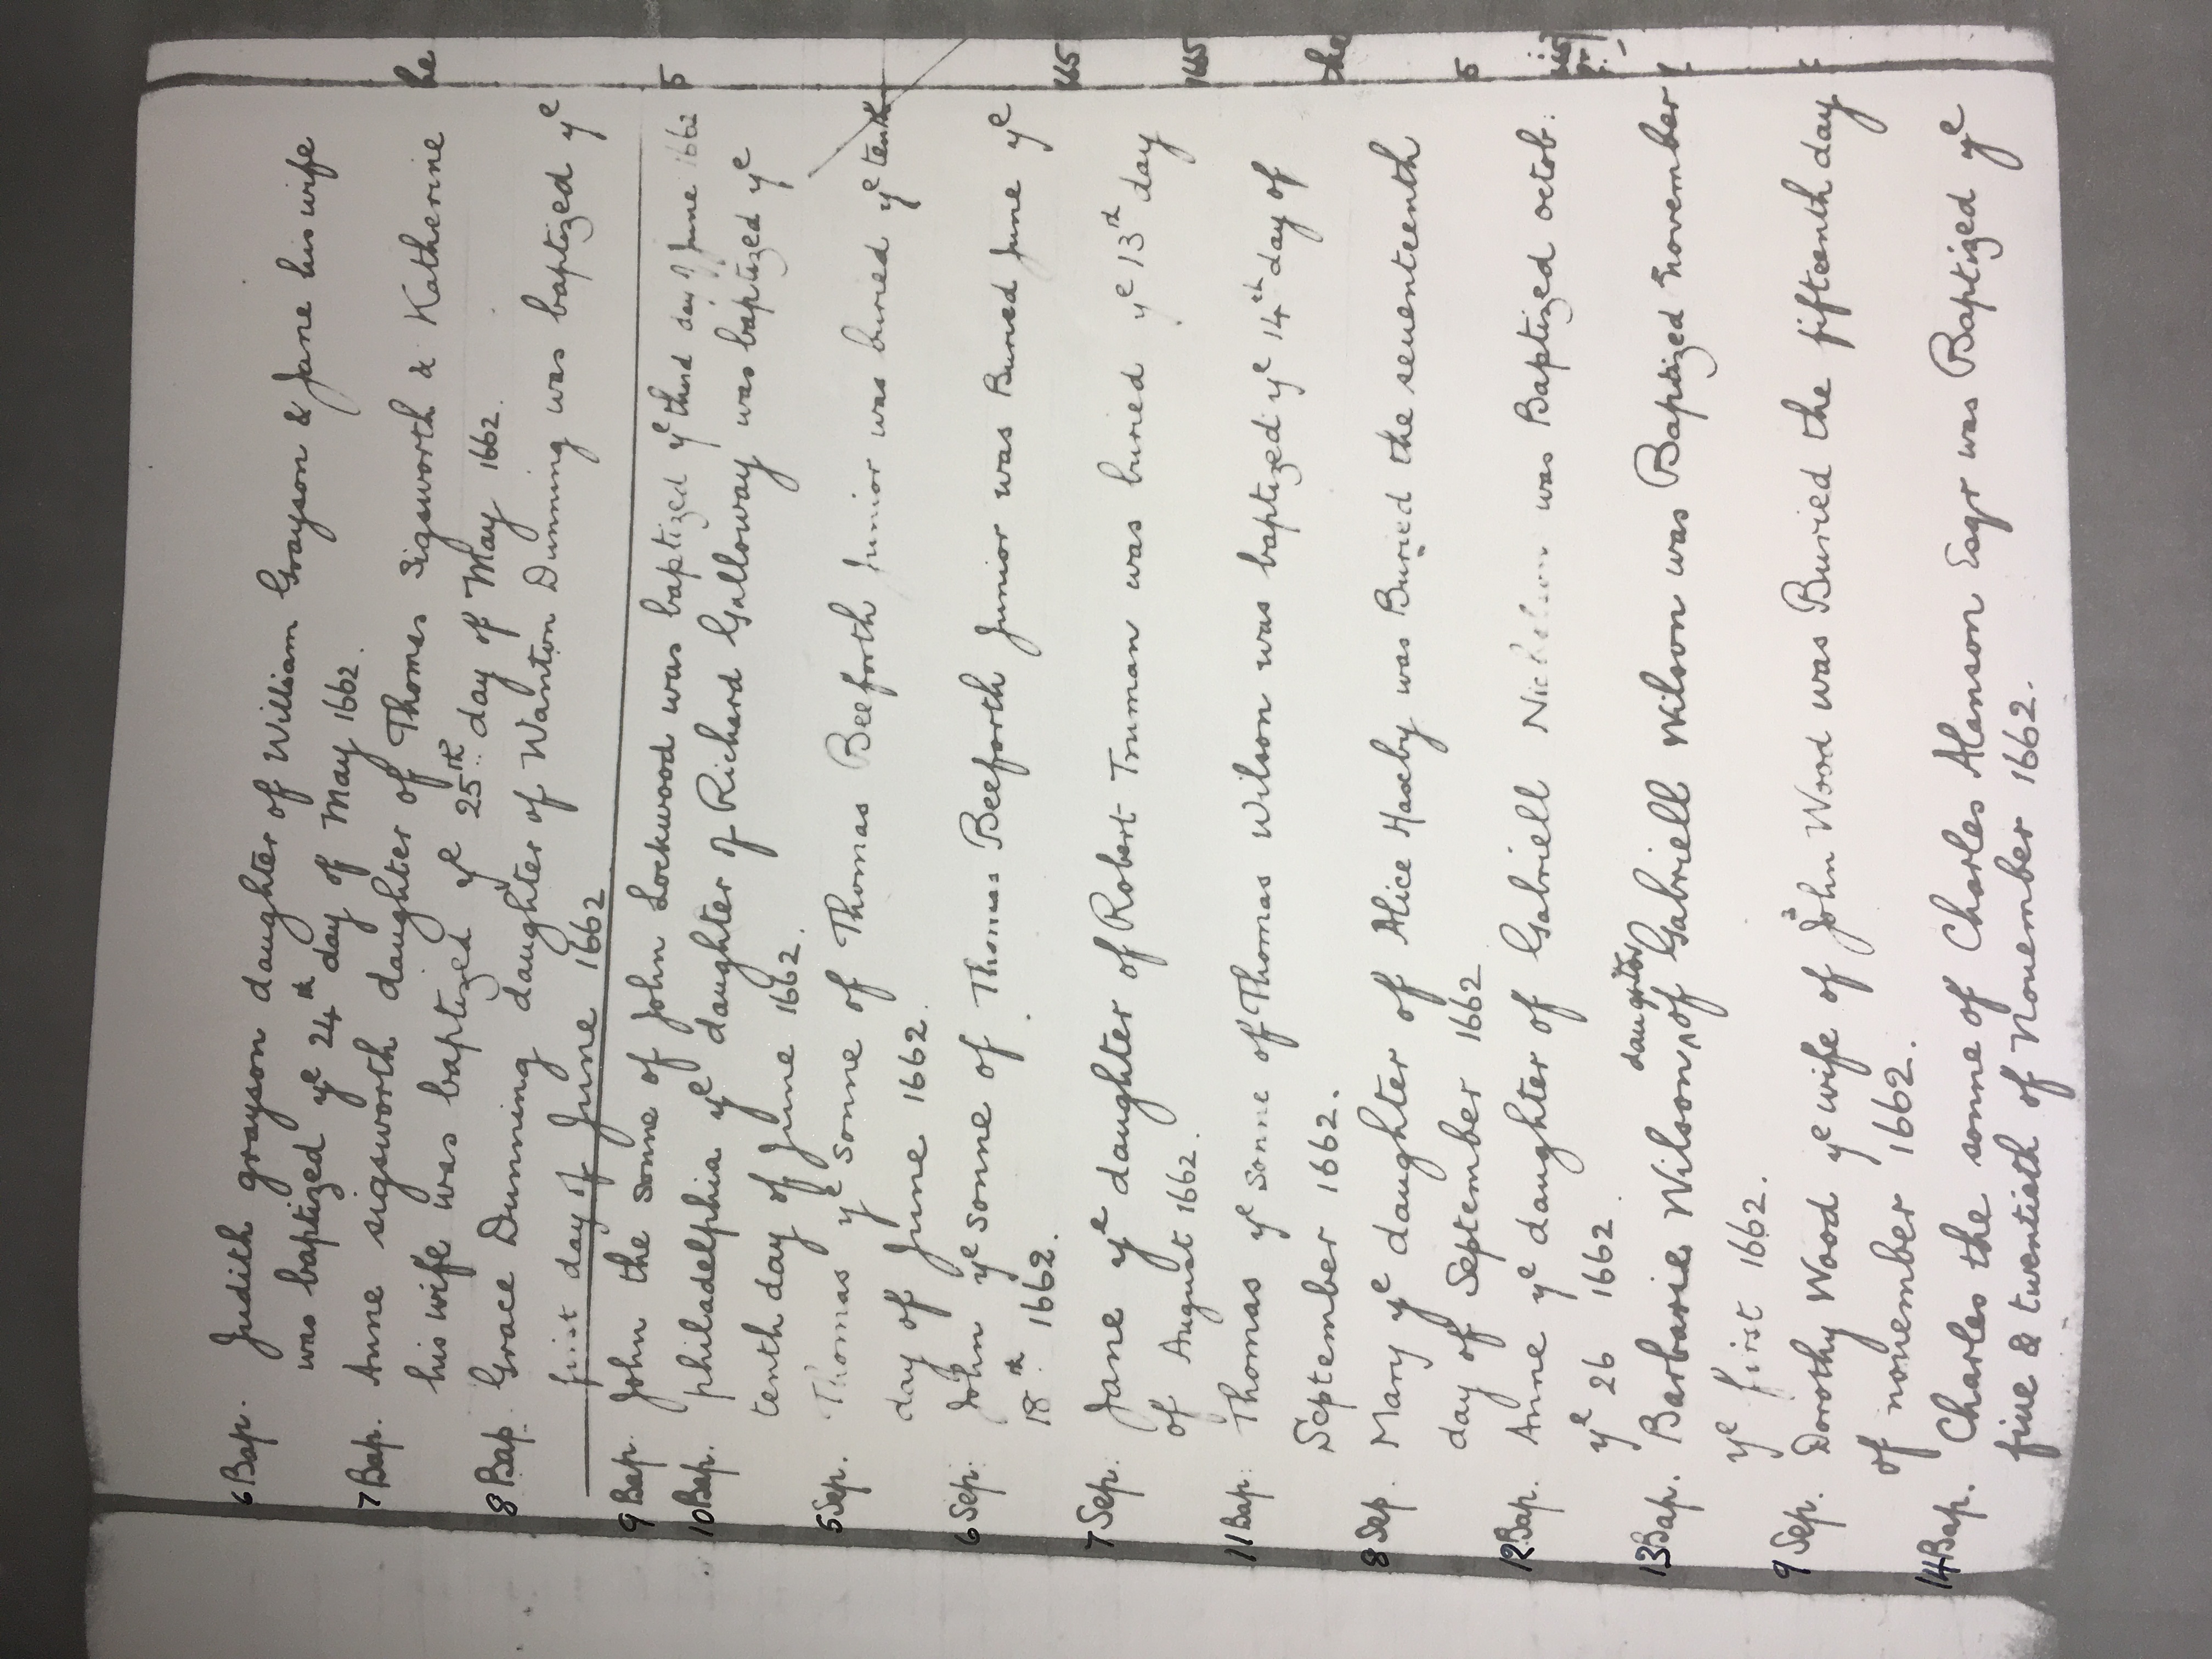 6 Bap. Judith grayson daughter of William Grayson & Jane his wife
was baptized yᵉ 24ᵗʰ day of May 1662.
7 Bap. Anne sigsworth daughter of Thomas Sigsworth & Katherine
his wife was baptized yᵉ 25ᵗʰ day of May 1662.
8 Bap. Grace Dunning daughter of Wanton Dunning was baptized yᵉ
first day of June 1662
9 Bap. John the sonne of John Lockwood was baptized yᵉ third day of June 1662
10 Bap. philadelphia yᵉ daughter of Richard Galloway was baptized yᵉ
tenth day of June 1662.
5 Sep. Thomas yᵉ sonne of Thomas Beeforth Junior was buried yᵉ tenth
day of June 1662.
6 Sep. John yᵉ sonne of Thomas Beeforth Junior was Buried June yᵉ
18ᵗʰ 1662.
7 Sep. Jane yᵉ daughter of Robert Truman was buried yᵉ 13ᵗʰ day
of August 1662.
11 Bap. Thomas yᵉ sonne of Thomas Wilson was baptized yᵉ 14ᵗʰ day of
September 1662.
8 Sep. Mary yᵉ daughter of Alice Haseby was Buried the seuenteenth
day of September 1662
12 Bap. Anne yᵉ daughter of Gabriell Nicholson was Baptized octob:
yᵉ 26 1662
daughter
13 Bap. Barbarie Wilson ^ of Gabriell Wilson was Baptized November
yᵉ first 1662.
9 Sep. Dorothy Wood yᵉ wife of John Wood was Buried the fifteenth day
of nouember 1662.
14 Bap. Charles the sonne of Charles Alanson Esqr was Baptized yᵉ
fiue & twentieth of Nouember 1662.
he
5
165
165
the
5